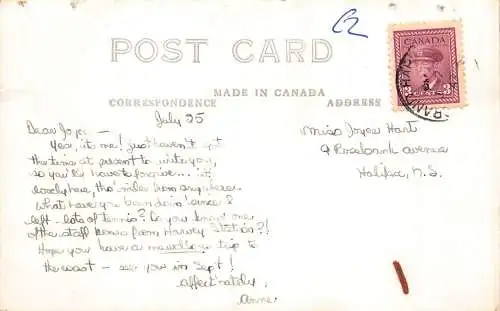 POST CARD
MADE IN CANADA
CORRESPONDENCE
ADDRESS
CANADA
3 CENTS 3
July 25
Dear Joyce —
Yes, it's me! Just haven't got
the time at present to write you,
so you'll have to forgive... it's
lovely here, tho' miles from anywhere.
What have you been doin' since I
left - lots of tennis? Do you know one
of the staff knows from Harvey Station?!
Hope you have a marvellous trip to
the coast — see you in Sept!
Affect'nately,
Anne.
Miss Joyce Hart
9 Rosebank avenue
Halifax, N.S.